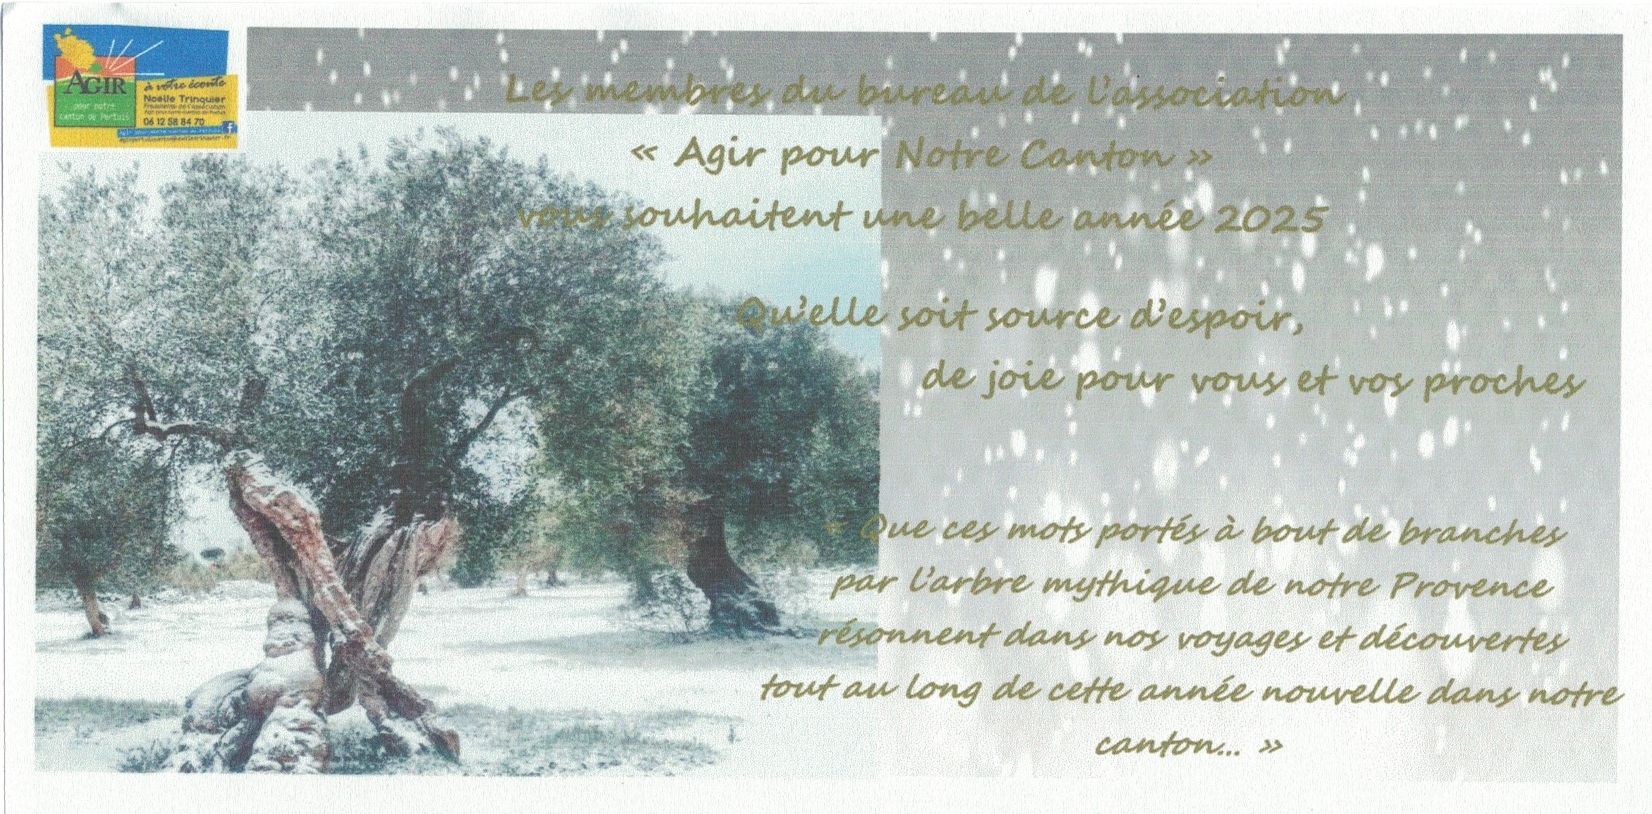 AGIR
pour notre
canton de Pertuis
à votre écoute
Noëlle Trinquier
Présidente de l'Association
Agir pour notre canton de Pertuis
06 12 58 84 70
Agir pour notre canton de Pertuis
Les membres du bureau de l'association
« Agir pour Notre Canton »
vous souhaitent une belle année 2025
Qu'elle soit source d'espoir,
de joie pour vous et vos proches
« Que ces mots portés à bout de branches
par l'arbre mythique de notre Provence
résonnent dans nos voyages et découvertes
tout au long de cette année nouvelle dans notre
canton... »